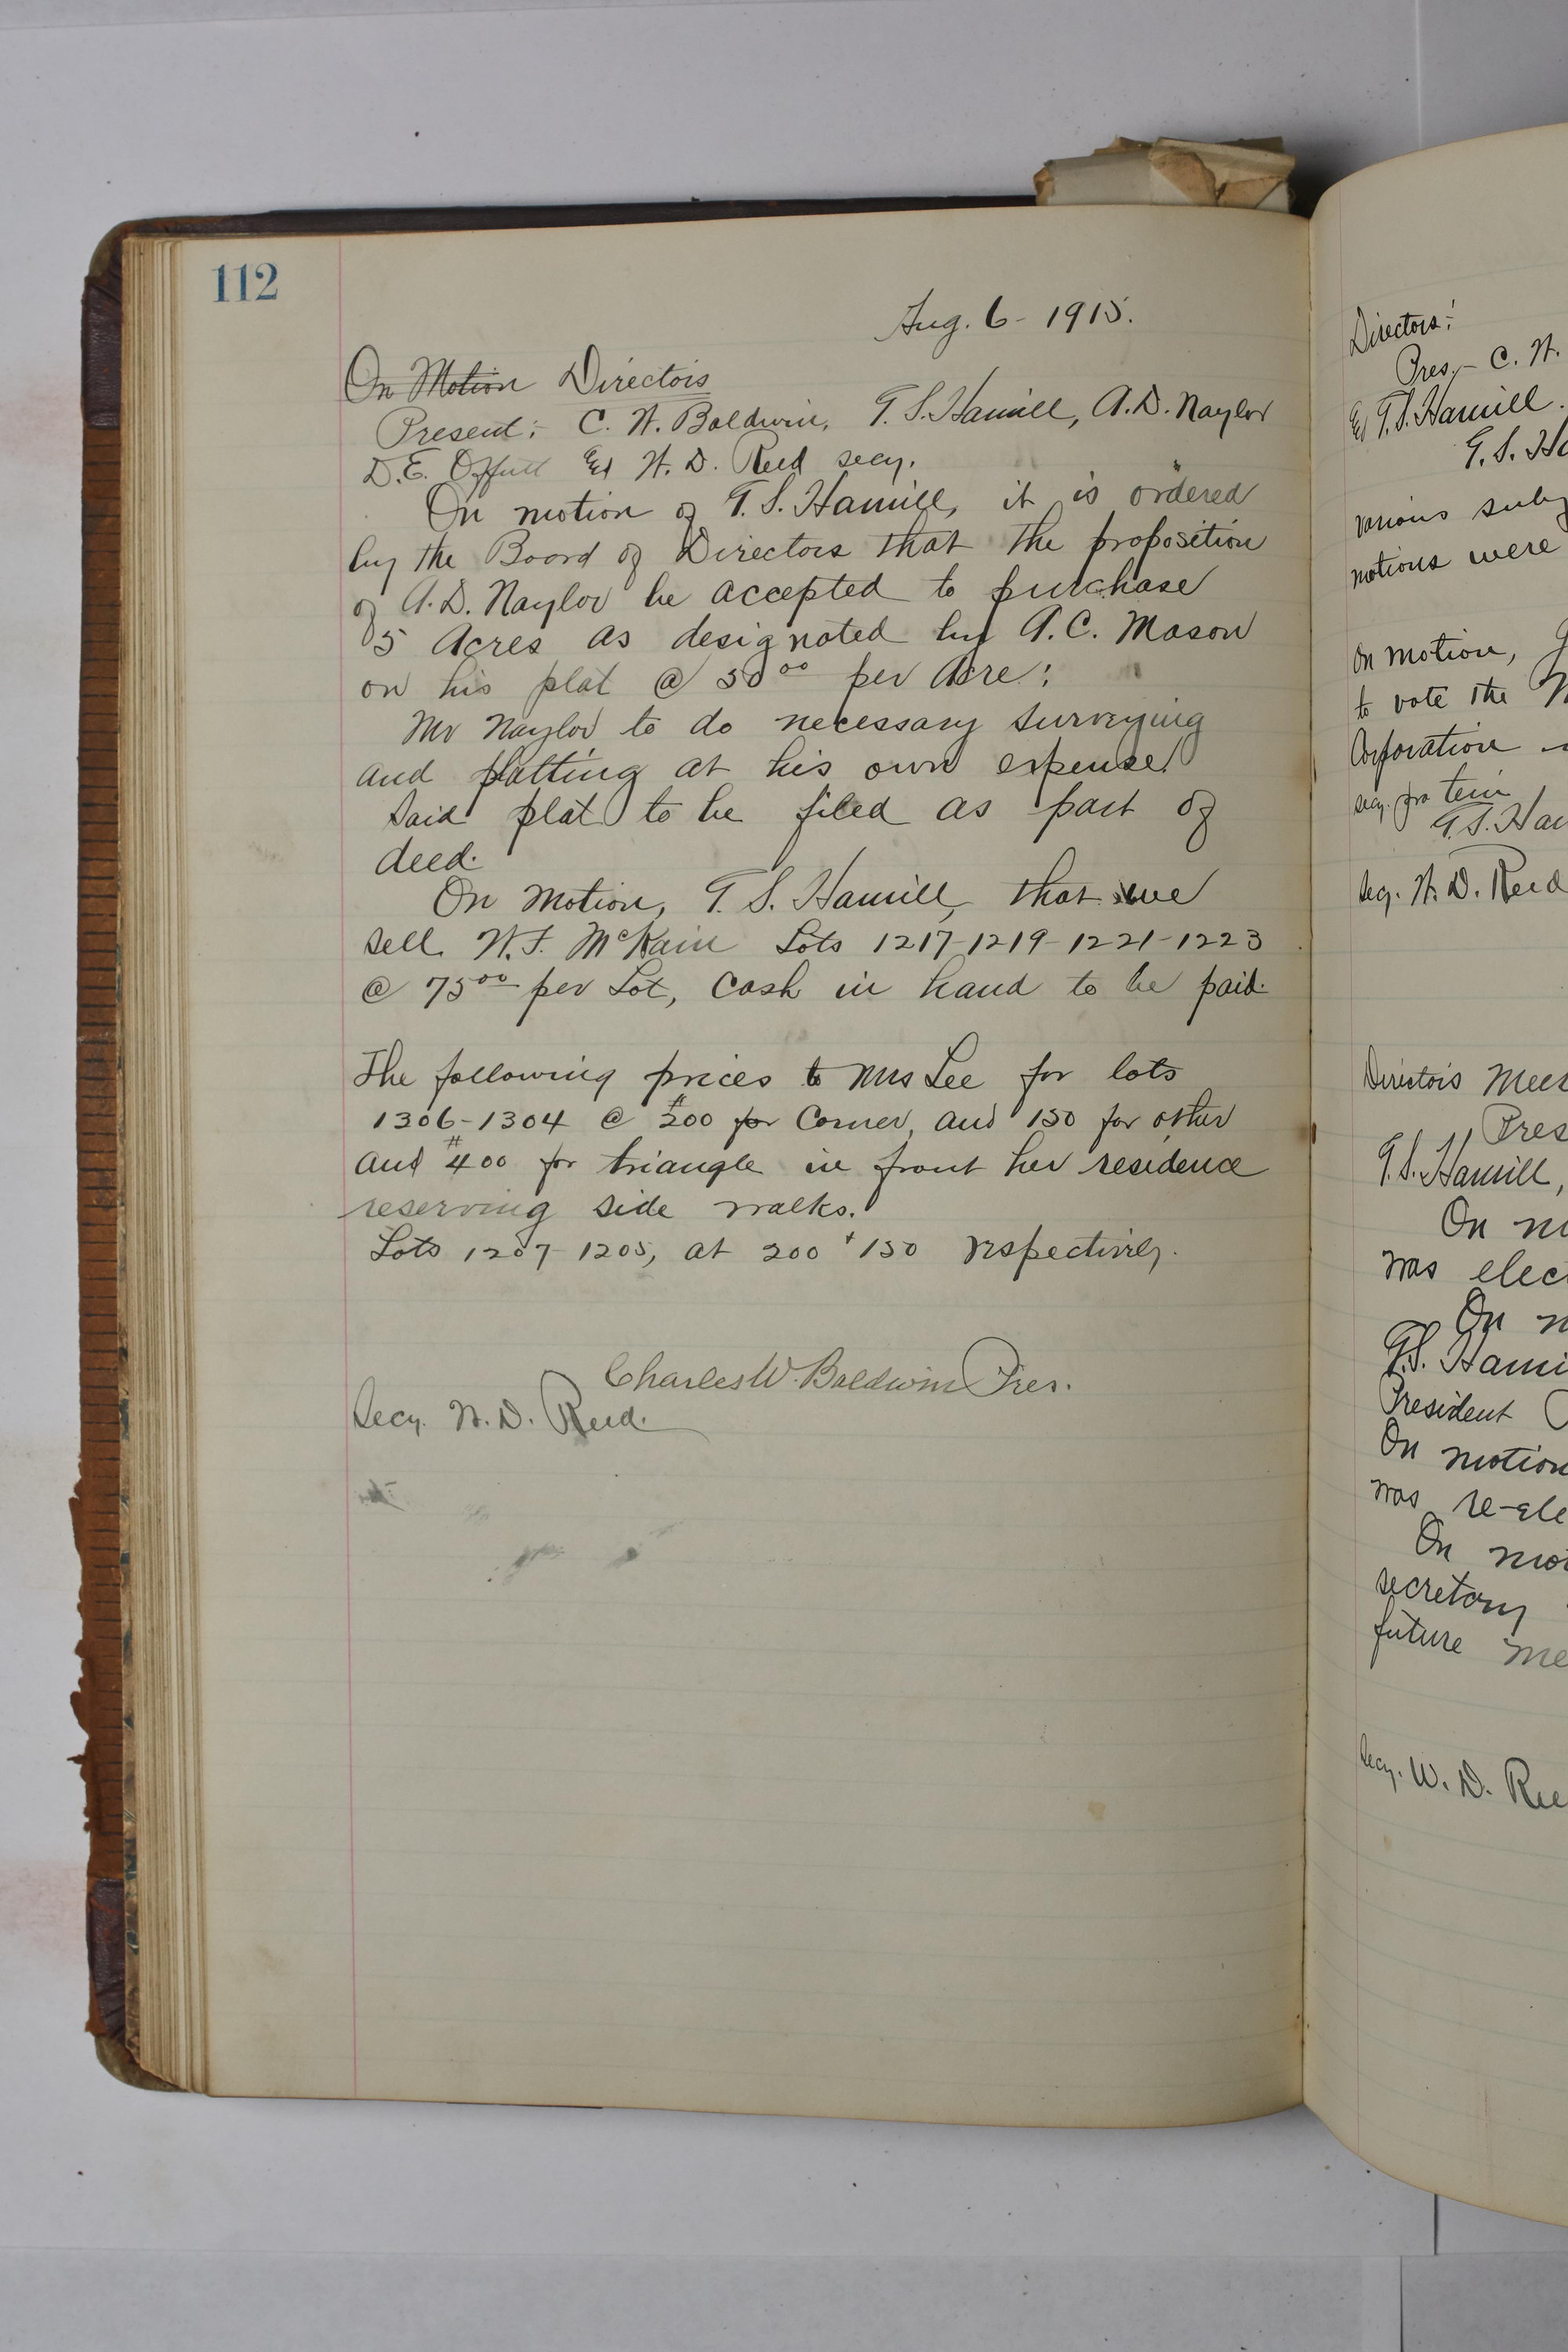 112
Aug. 6 - 1915.
On Motion Directors
Present: C. W. Baldwin, G. S. Hamill, A. D. Naylor
D. E. Offutt & W. D. Reed secy.
On motion of G. S. Hamill, it is ordered
by the Board of Directors that the proposition
of A. D. Naylor be accepted to purchase
5 Acres as designated by A. C. Mason
on his plat @ 50 00 per Acre:
Mr Naylor to do necessary surveying
and platting at his own expense.
Said plat to be filed as part of
deed.
On Motion, G. S. Hamill, that we
sell W. F. McKain Lots 1217-1219-1221-1223
@ 75 00 per Lot, Cash in hand to be paid.
The following prices to Mrs Lee for lots
1306-1304 @ $200 for Corner, and 150 for other
and $400 for triangle in front her residence
reserving side walks.
Lots 1207-1205, at 200 + 150 respectively.
Charles W. Baldwin Pres.
Secy. W. D. Reed.
Directors:
Pres. - C. W.
& G. S. Hamill.
G. S. Ha
various subj
motions were
On motion, G
to vote the M
Corporation
secy. pro tem
G. S. Ham
Secy. W. D. Reed
Directors Meet
Pres
G. S. Hamill,
On mo
was elec
On m
G. S. Hami
President
On motion
was re-ele
On mot
secretary
future me
Secy. W. D. Ree